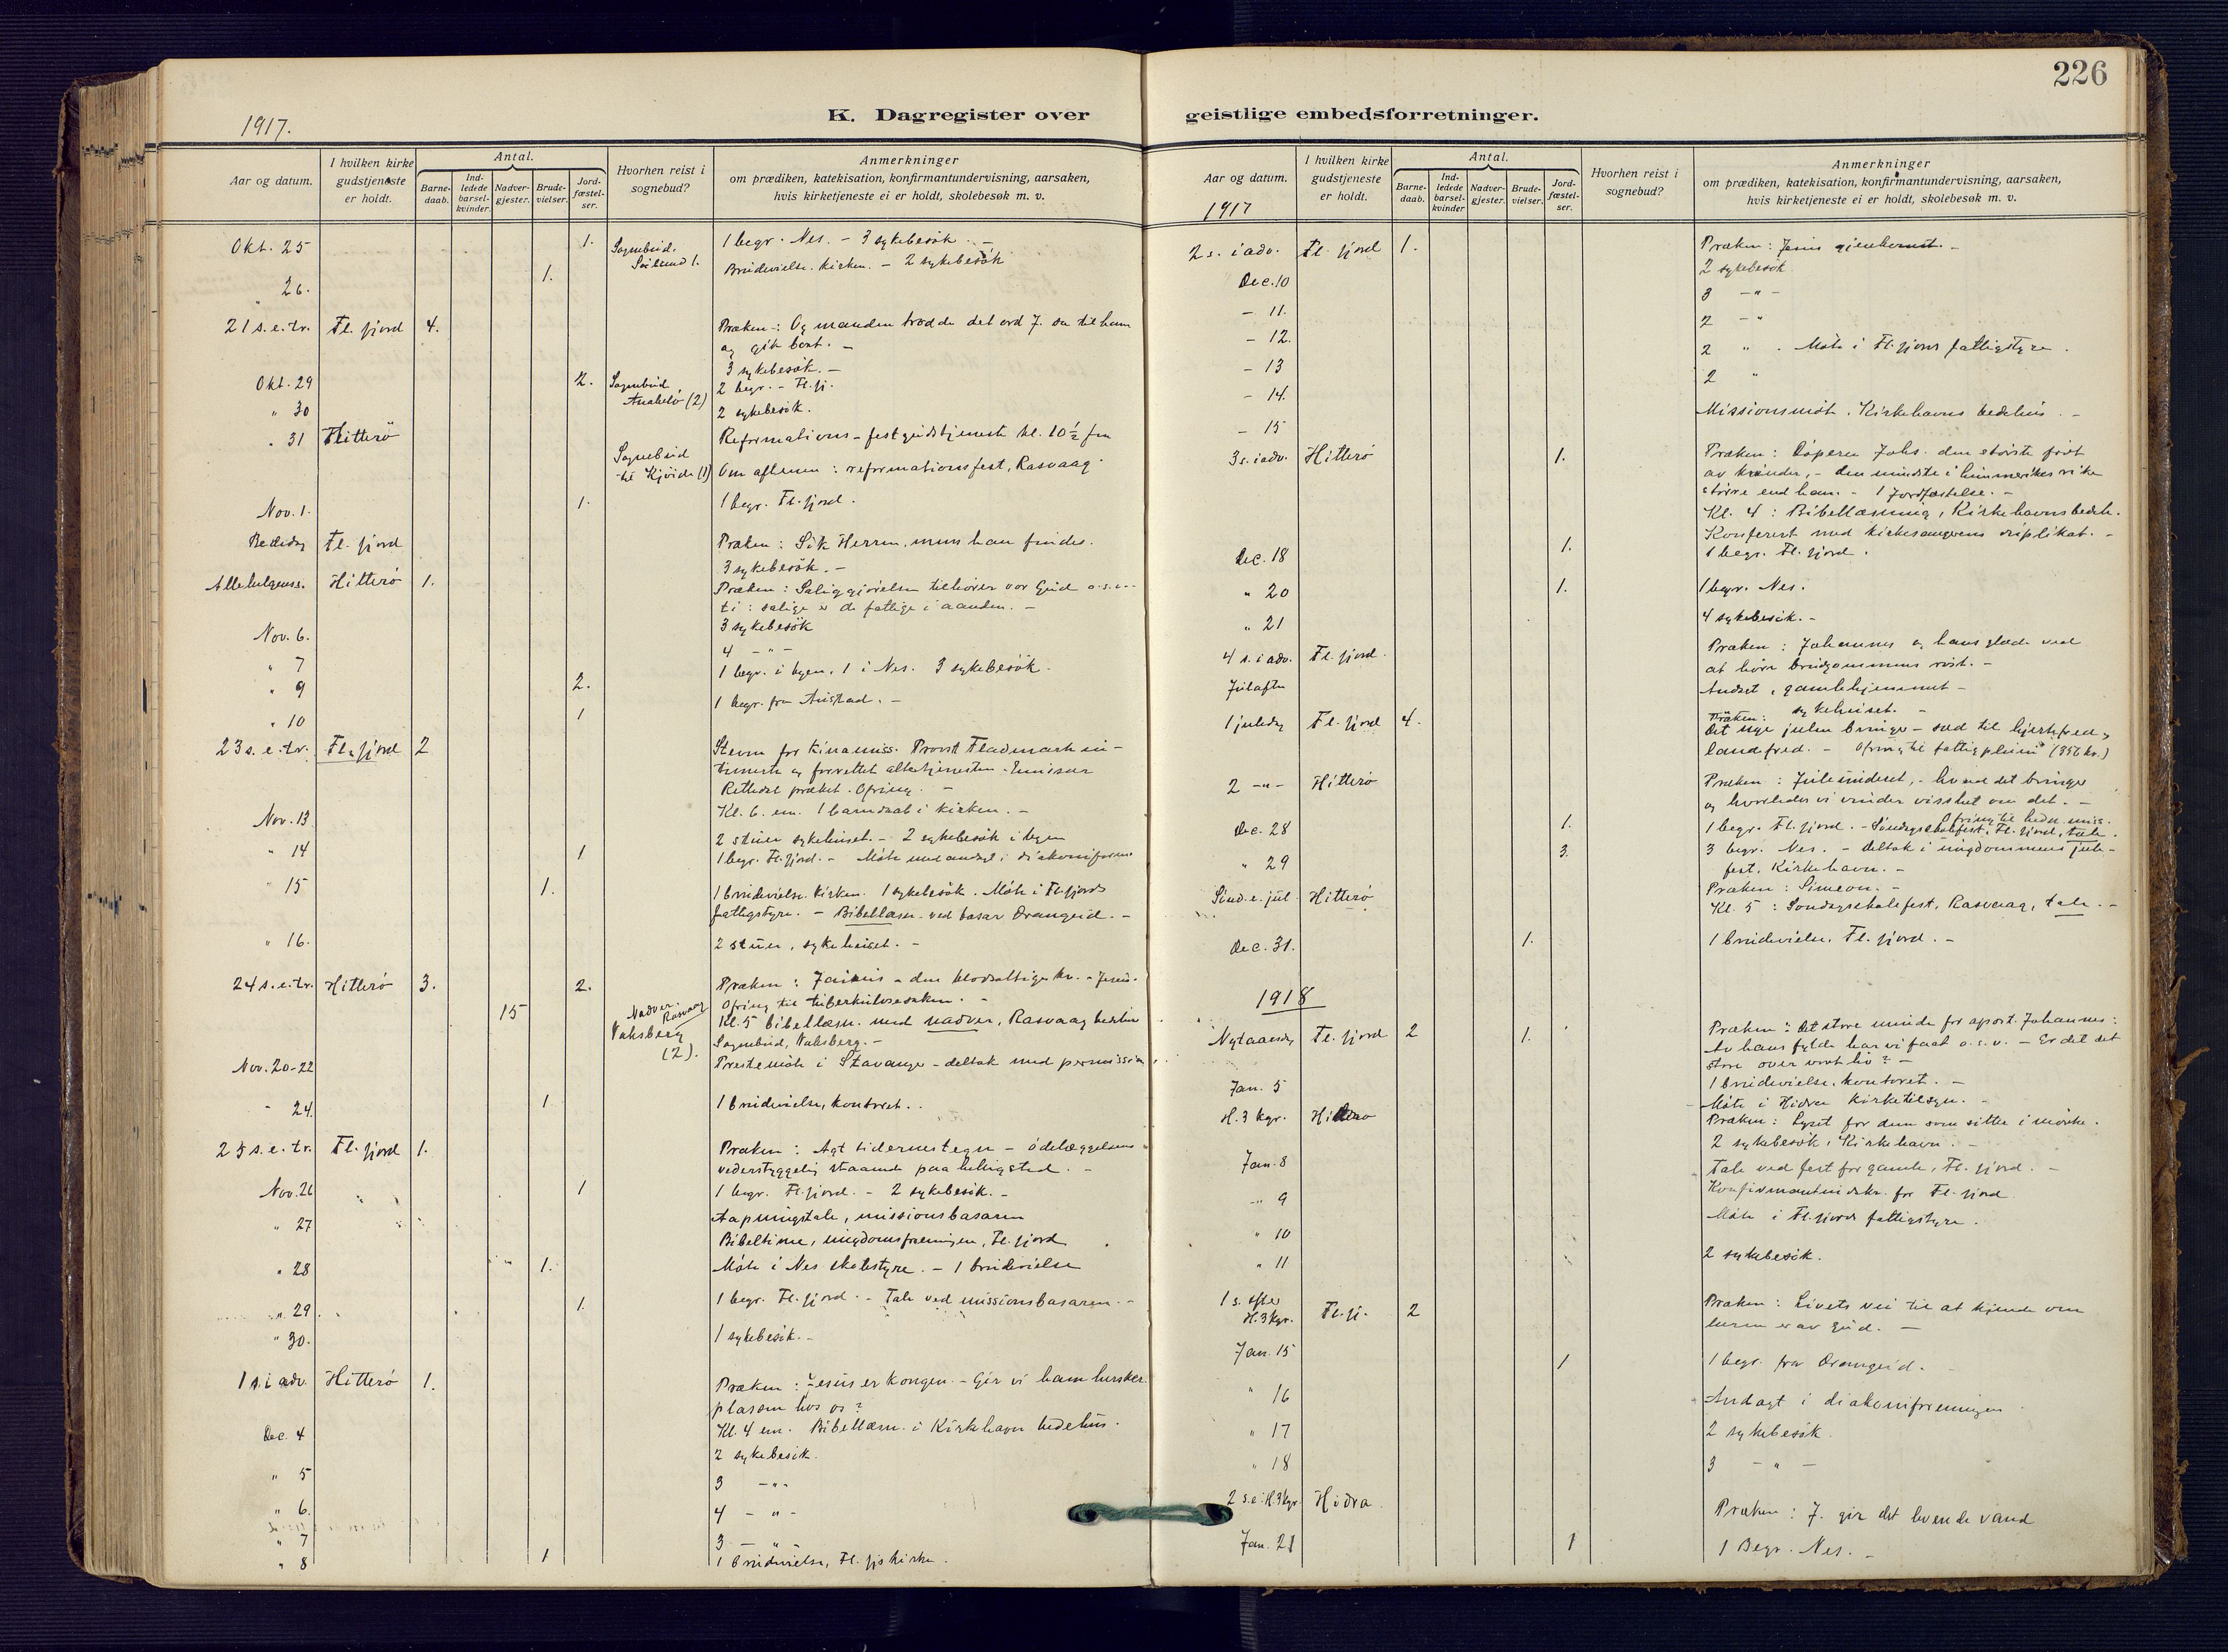 226
K. Dagregister over geistlige embedsforretninger.
1917.
Aar og datum.
I hvilken kirke gudstjeneste er holdt.
Antal.
Barne-daab.
Ind-ledede barsel-kvinder.
Nadver-gjester.
Brude-vielser.
Jord-fæstel-ser.
Hvorhen reist i sognebud?
Anmerkninger
om prædiken, katekisation, konfirmantundervisning, aarsaken,
hvis kirketjeneste ei er holdt, skolebesøk m. v.
Okt. 25 1. Sognebud. 1. 1 begr. Nes. – 3 sykebesök. –
" 26. 1. Brudevielse. Kirken. – 2 sykebesök
21 s. e. tr. Fl. fjord 4. Præken: Og manden trodde det ord J. sa til ham
og gik bort. –
3 sykebesök. –
Okt. 29 2. Sognebud (2) 2 begr. – Fl. fj.
" 30 2 sykebesök.
" 31 Hitterö Reformations-festgudstjeneste kl. 10 ½ fm
Sognebud til (1) Om aftenen: reformationsfest, Rasvaag
Nov. 1. 1. 1 begr. Fl. fjord.
Bededag Fl. fjord Præken: Sök Herren, mens han findes.
3 sykebesök. –
Allehelgens. Hitterö 1. Præken: Saliggjörelsen tilhører vor Gud o.s.v.
ti: salige er de fattige i aanden. –
Nov. 6. 3 sykebesök
" 7 4 – " –
" 9 2. 1 begr. i byen, 1 i Nes. 3 sykebesök.
" 10 1 1 begr. fra Austad. –
23 s. e. tr. Fl. fjord 2 Stevne for Kinamiss. Provst Fladmark
og forrettet altertjenesten. Emissær
præket. Ofring. –
Kl. 6. em. 1 barnedaab i kirken. –
Nov. 13 2 stuer sykehuset. – 2 sykebesök i byen
" 14 1 1 begr. Fl. fjord. – Möte med andagt i diakoniforen.
" 15 1. 1 brudevielse. Kirken. 1 sykebesök. Möte i Fl. fjords
fattigstyre. – Bibellæsn. ved basar Drangeid. –
" 16. 2 stuer, sykehuset. –
24 s. e. tr. Hitterö 3. 2. Præken: Jairus – den blodsottige kv. – Jesus.
Ofring til tuberkulosesaken. –
15 Nadver. Rasvaag Kl. 5 bibellæsn. med nadver, Rasvaag bedehus
Vaksberg (2). Sognebud, Vaksberg. –
Nov. 20-22 Prestemöte i Stavanger – deltok med permission.
" 24. 1 1 brudevielse, kontoret.
25 s. e. tr. Fl. fjord 1. Præken: Agt tidernes tegn – ödelæggelsens
vederstyggelig staaende paa helligsted. –
Nov. 26 1 1 begr. Fl. fjord. – 2 sykebesök. –
" 27 Aapningstale, missionsbasaren
Bibeltime, ungdomsforeningen, Fl. fjord
" 28 1. Möte i Nes skolestyre. – 1 brudevielse
" 29 1. 1 begr. Fl. fjord. – Tale ved missionsbasaren. –
" 30. 1 sykebesök. –
1 s. i adv. Hitterö 1. Præken: Jesus er kongen. – Gir vi ham hersker-
plassen hos os?
Kl. 4 em. Bibellæsn. i Kirkehavn bedehus.
Dec. 4 2 sykebesök.
" 5 3 – " –
" 6. 4 – " –
" 7 3 – " –
" 8 1 1 brudevielse, Fl. fjs kirke.
Aar og datum.
I hvilken kirke gudstjeneste er holdt.
Antal.
Barne-daab.
Ind-ledede barsel-kvinder
Nadver-gjester.
Brude-vielser.
Jord-fæstel-ser.
Hvorhen reist i sognebud?
Anmerkninger
om prædiken, katekisation, konfirmantundervisning, aarsaken,
hvis kirketjeneste ei er holdt, skolebesøk m. v.
1917
2 s. i adv. Fl. fjord 1. Præken: Jesus gjenkomst. –
Dec. 10 2 sykebesök
– 11. 3 – " –
– 12. 2 – "
– 13 2 " . Möte i Fl. fjords fattigstyre.
– 14. 2 "
– 15 Missionsmöte, Kirkehavns bedehus. –
3 s. i adv. Hitterö 1. Præken: Döperen Johs. den störste födt
av kvinder, – den mindste i himmerikes rike
större end han. – 1 Jordfæstelse. –
Kl. 4: Bibellæsning, Kirkehavns bedeh.
Konferert med kirkesangerens –
Dec. 18 1. 1 begr. Fl. fjord.
" 20 1. 1 begr. Nes.
" 21 4 sykebesök. –
4 s. i adv. Fl. fjord. Præken: Johannes og hans glæde ved
at höre brudgommens röst. –
Juleaften Andagt, gamlehjemmet –
sykehuset. –
1 juledag Fl. fjord 4. Præken: Det nye julen bringer – bud til hjertefred,
landefred. – Ofring til fattigpleien (356 kr.)
2 – " – Hitterö Præken: Julebudet, – hvad det bringer
og hvorledes vi vinder visshet om det. –
Ofring til hedn. miss.
Dec. 28 1. 1 begr. Fl. fjord. – Söndagsskolefest, Fl. fjord, tale.
" 29 3. 3 begr. Nes. – deltok i ungdommens jule-
fest, Kirkehavn. –
Sönd. e. jul Hitterö Præken: Simeon. –
Kl. 5: Söndagsskolefest, Rasvaag, tale. –
Dec. 31. 1. 1 brudevielse, Fl. fjord. –
1918
Nytaarsdag Fl. fjord 2 1. Præken: Det store minde for apost. Johannes:
Av hans fylde har vi faat o. s. v. – Er det det
store over vort liv? –
1 brudevielse, kontoret. –
Jan. 5 Möte i Hidra kirketilsyn. –
H. 3 kgr. Hitterö Præken: Lyset for dem som sitter i mörke.
2 sykebesök, Kirkehavn. –
Jan. 8 Tale ved fest for gamle, Fl. fjord. –
" 9 Konfirmantindskr. for Fl. fjord
" 10 Möte i Fl. fjords fattigstyre.
" 11 2 sykebesök.
1 s. efter H. 3 kgr. Fl. fj. 2 Præken: Livets vei til at kjende om
læren er av Gud. –
Jan. 15 1 1 begr. fra Drangeid. –
" 16 Andagt i diakoniforeningen
" 17 2 sykebesök.
" 18 3 – " –
2 s. e. H. 3 kgr. Hidra. Præken: J. gir det levende vand
Jan. 21 1 1 Begr. Nes. –